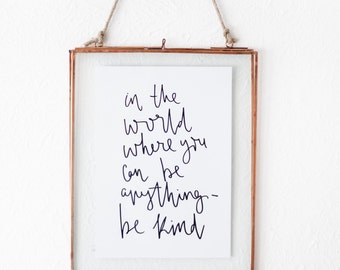 in the
world
where you
can be
anything-
be kind